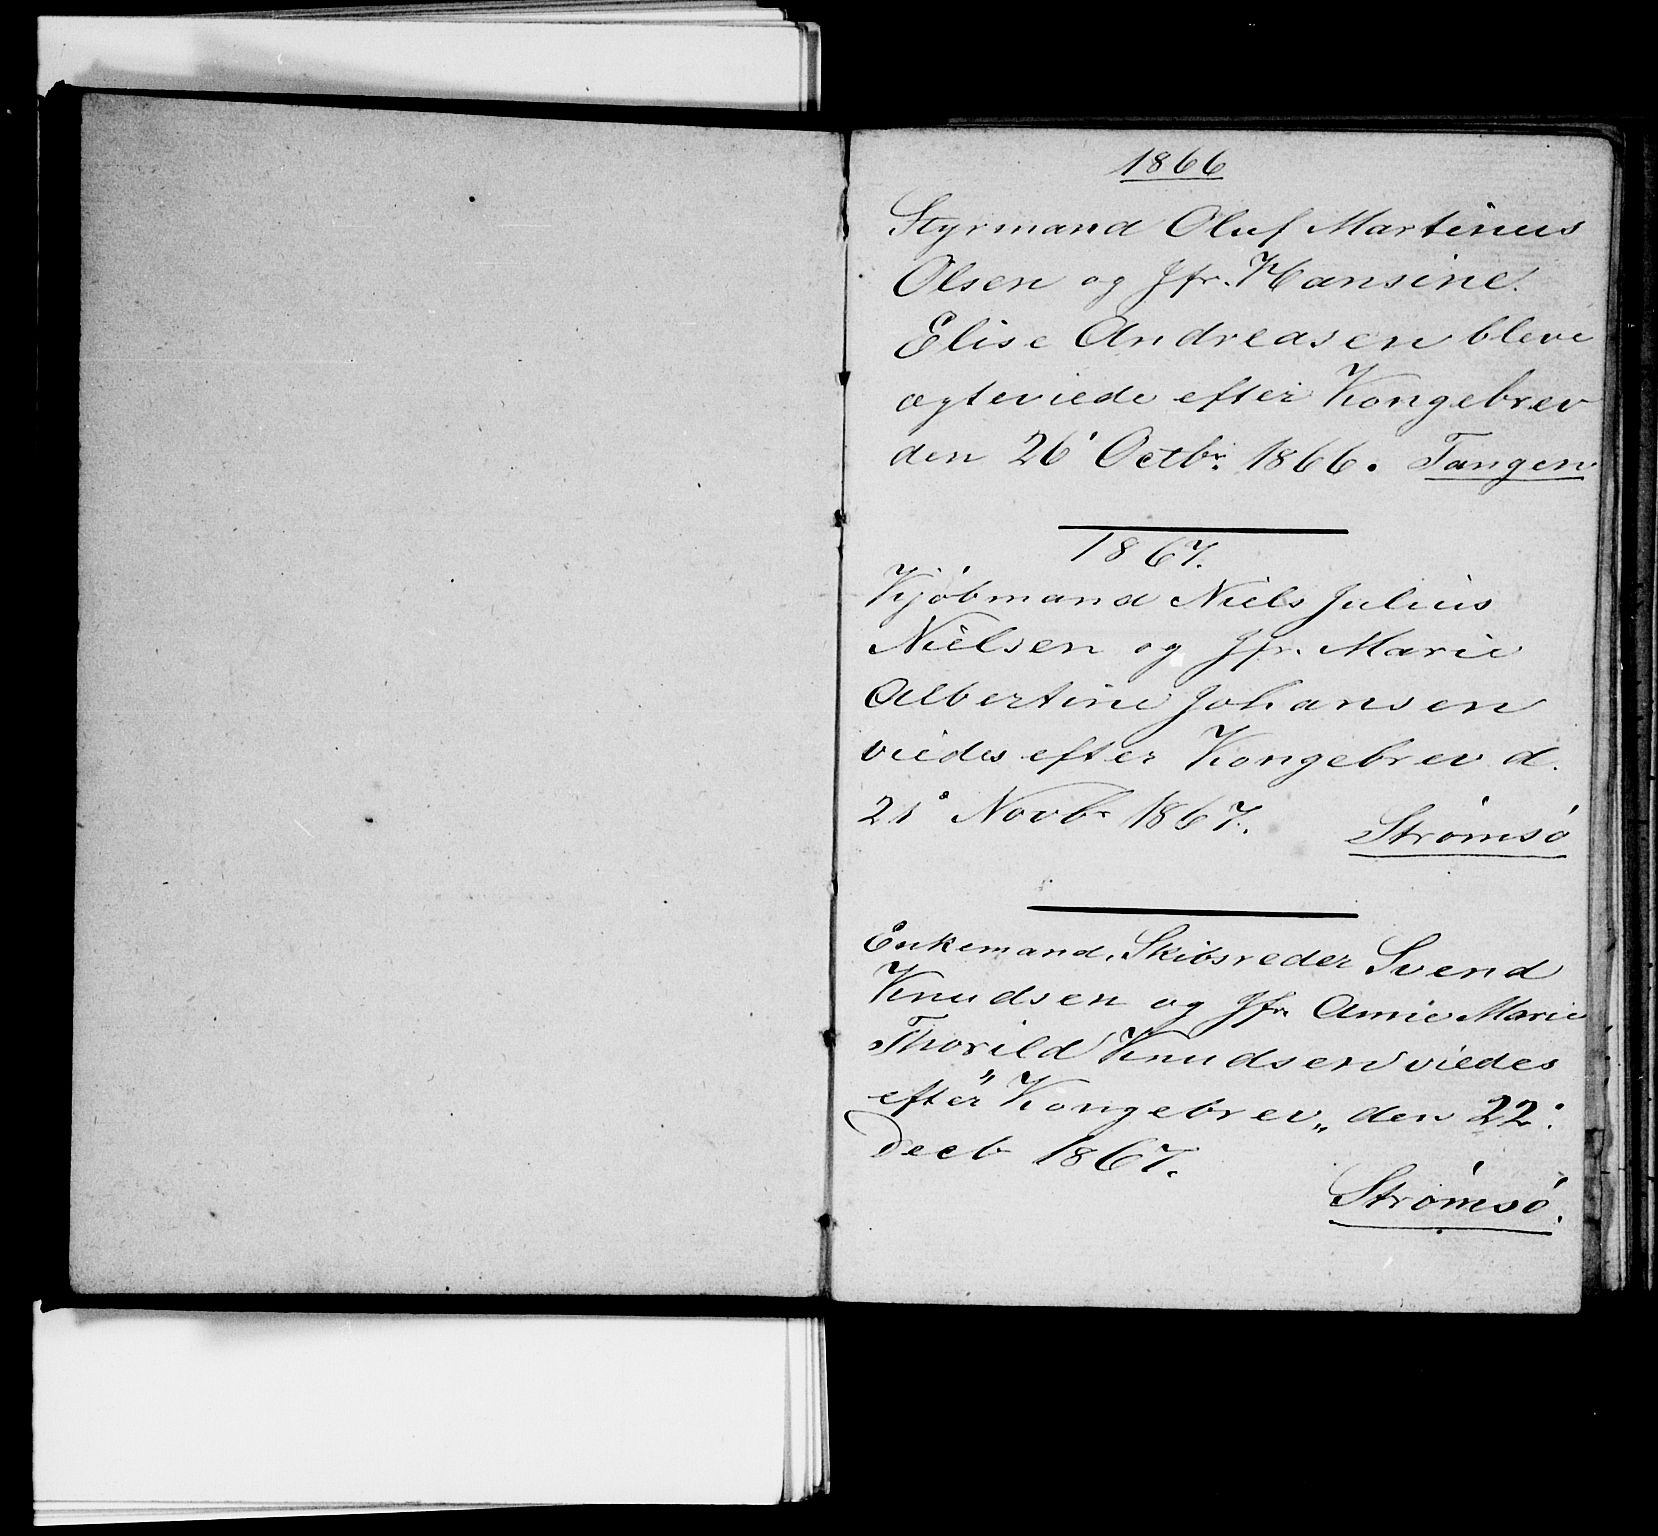 1866
Styrmand Oluf Martinius
Olsen og Jfr. Hansine
Elise Andreasen bleve
ægteviede efter Kongebrev
den 26' Octbr. 1866. Tangen
1867.
Kjöbmand Niels Julius
Nielsen og Jfr. Marie
Albertine Johansen
viedes efter Kongebrev d.
21' Novbr 1867. Strömsö
Enkemand, Skibsreder Svend
Knudsen og Jfr. Annie Marie
Thorild Knudsen viedes
efter "Kongebrev„ den 22'
Decb 1867.
Strömsö.